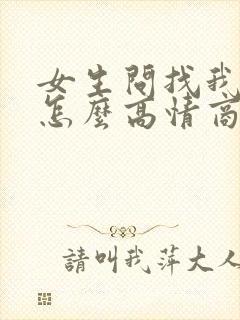 女生問找我
怎麼高情商
請叫我萍大人